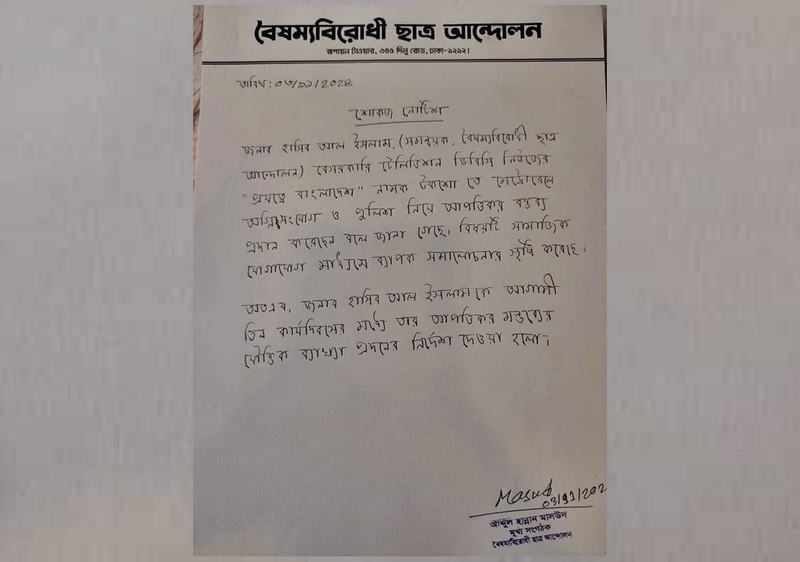 বৈষম্যবিরোধী ছাত্র আন্দোলন
রূপায়ন টাওয়ার, ৩৪৫ দিলু রোড, ঢাকা-১২১২।
তারিখ: ০৩/১১/২০২৪
শোকজ নোটিশ
জনাব হাসিব আল ইসলাম, (সমন্বয়ক, বৈষম্যবিরোধী ছাত্র
আন্দোলন) বেসরকারি টেলিভিশন ডিবিসি নিউজের
"প্রযত্নে বাংলাদেশ" নামক টকশো তে মেট্রোরেলে
অগ্নিসংযোগ ও পুলিশ নিয়ে আপত্তিকর বক্তব্য
প্রদান করেছেন বলে জানা গেছে, বিষয়টি সামাজিক
যোগাযোগ মাধ্যমে ব্যাপক সমালোচনার সৃষ্টি করেছে।
অতএব, জনাব হাসিব আল ইসলাম কে আগামী
তিন কার্যদিবসের মধ্যে তার আপত্তিকর মন্তব্যের
যৌক্তিক ব্যাখ্যা প্রদানের নির্দেশ দেওয়া হলো।
Masud
03/11/202
আব্দুল হান্নান মাসউদ
মুখ্য সংগঠক
বৈষম্যবিরোধী ছাত্র আন্দোলন